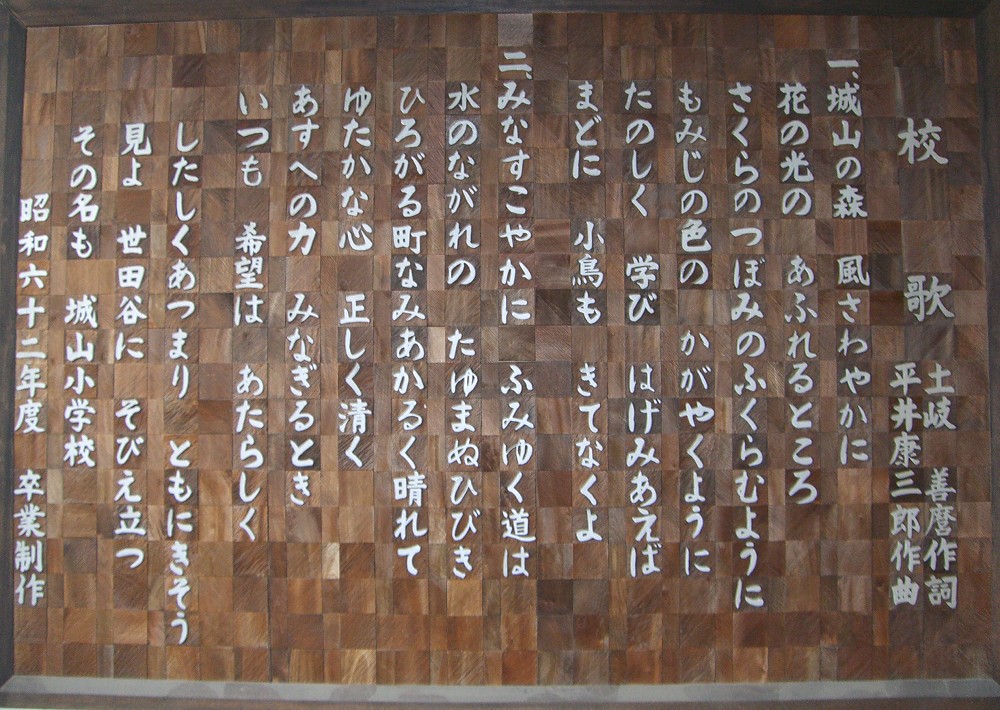 校 歌
土岐 善麿作詞
平井康三郎作曲
一、城山の森 風さわやかに
花の光の あふれるところ
さくらのつぼみのふくらむように
もみじの色の かがやくように
たのしく 学び はげみあえば
まどに 小鳥も きてなくよ
二、みなすこやかに ふみゆく道は
水のながれの たゆまぬひびき
ひろがる町なみあかるく晴れて
ゆたかな心 正しく清く
あすへの力 みなぎるとき
いつも 希望は あたらしく
したしくあつまり ともにきそう
見よ 世田谷に そびえ立つ
その名も 城山小学校
昭和六十二年度 卒業制作